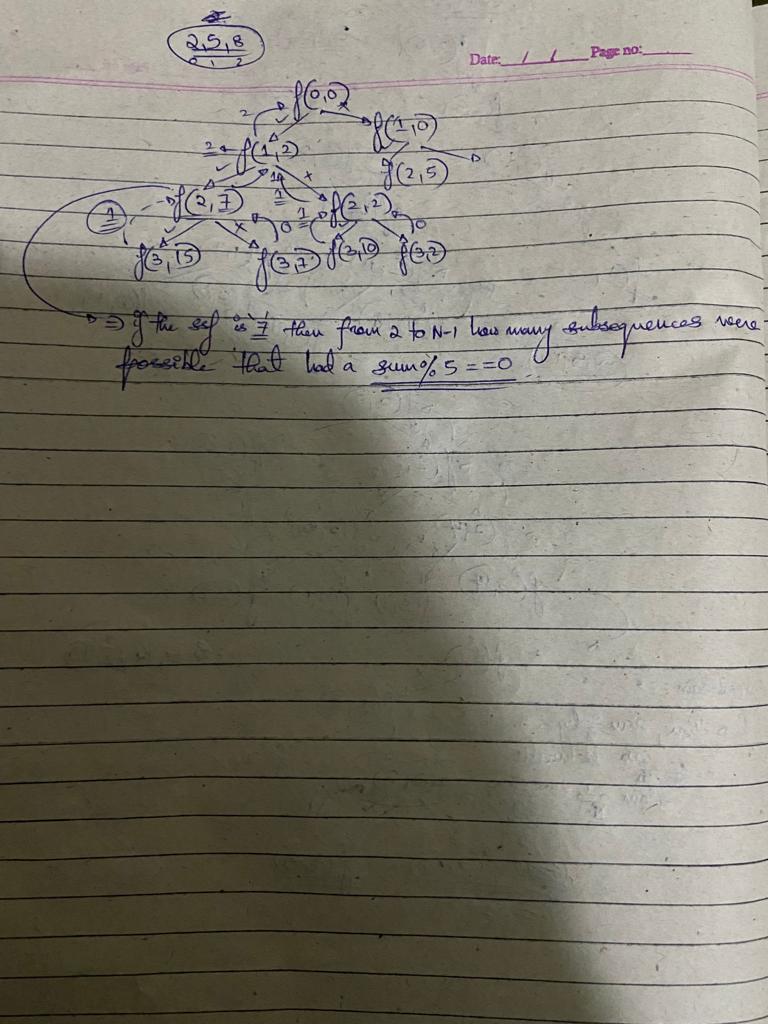 2,5,8
0 1 2
Date: / / Page no:
f(0,0)
2 f(1,0)
2 f(1,2)
f(2,5)
1 f(2,7) 1 1 f(2,2)
f(3,15) 0 f(3,7) 1 f(3,10) 0 f(3,2)
⇒ if the ssf is '7' then from 2 to N-1 how many subsequences were
possible that had a sum%5==0